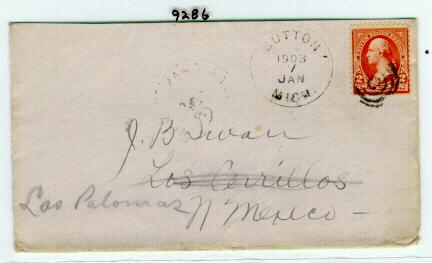 92B6
SUTTON
1903
7
JAN
MICH.
J. B Swan
Los Cerrillos
Las Palomas
N Mexico -